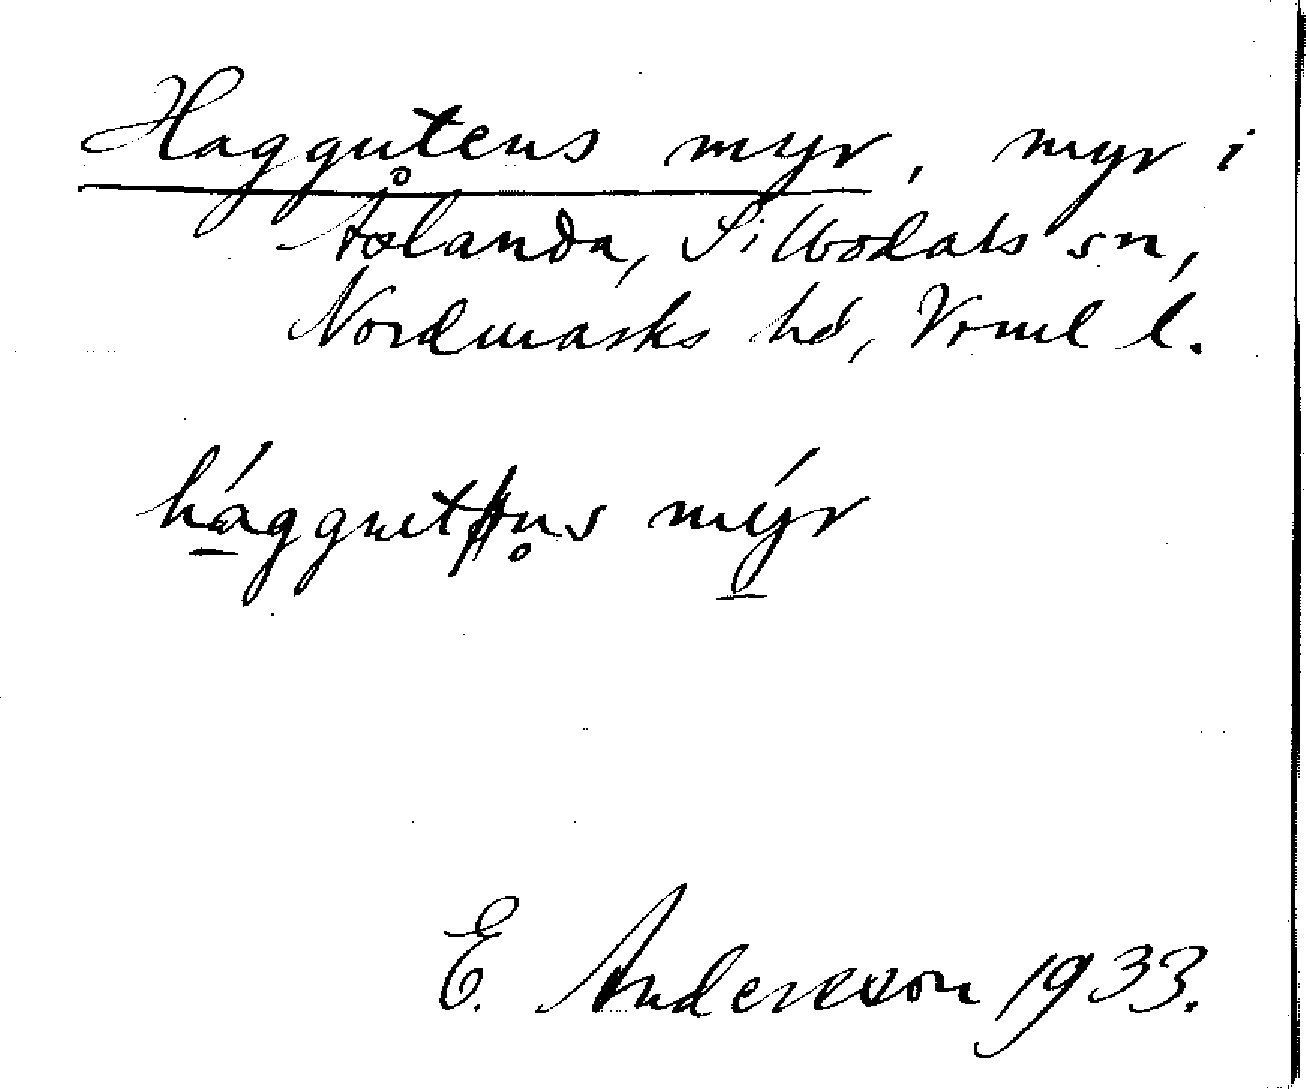 Haggutens myr, myr i
Årlanda, Silbodals sn,
Nordmarks hd, Vrml l.
hággutn̥s mýr
E. Andersson 1933.